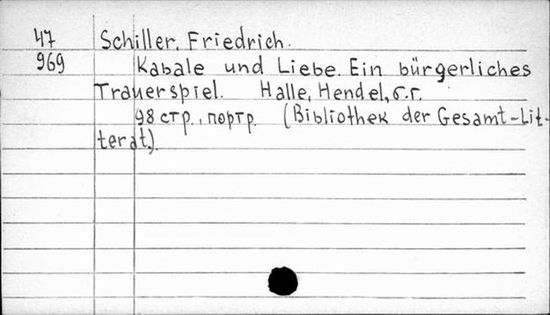 47 Schiller, Friedrich.
969 Kabale und Liebe. Ein bürgerliches
Trauerspiel. Halle, Hendel, б.г.
98 стр., портр. (Bibliothek der Gesamt-Lit-
terat.).